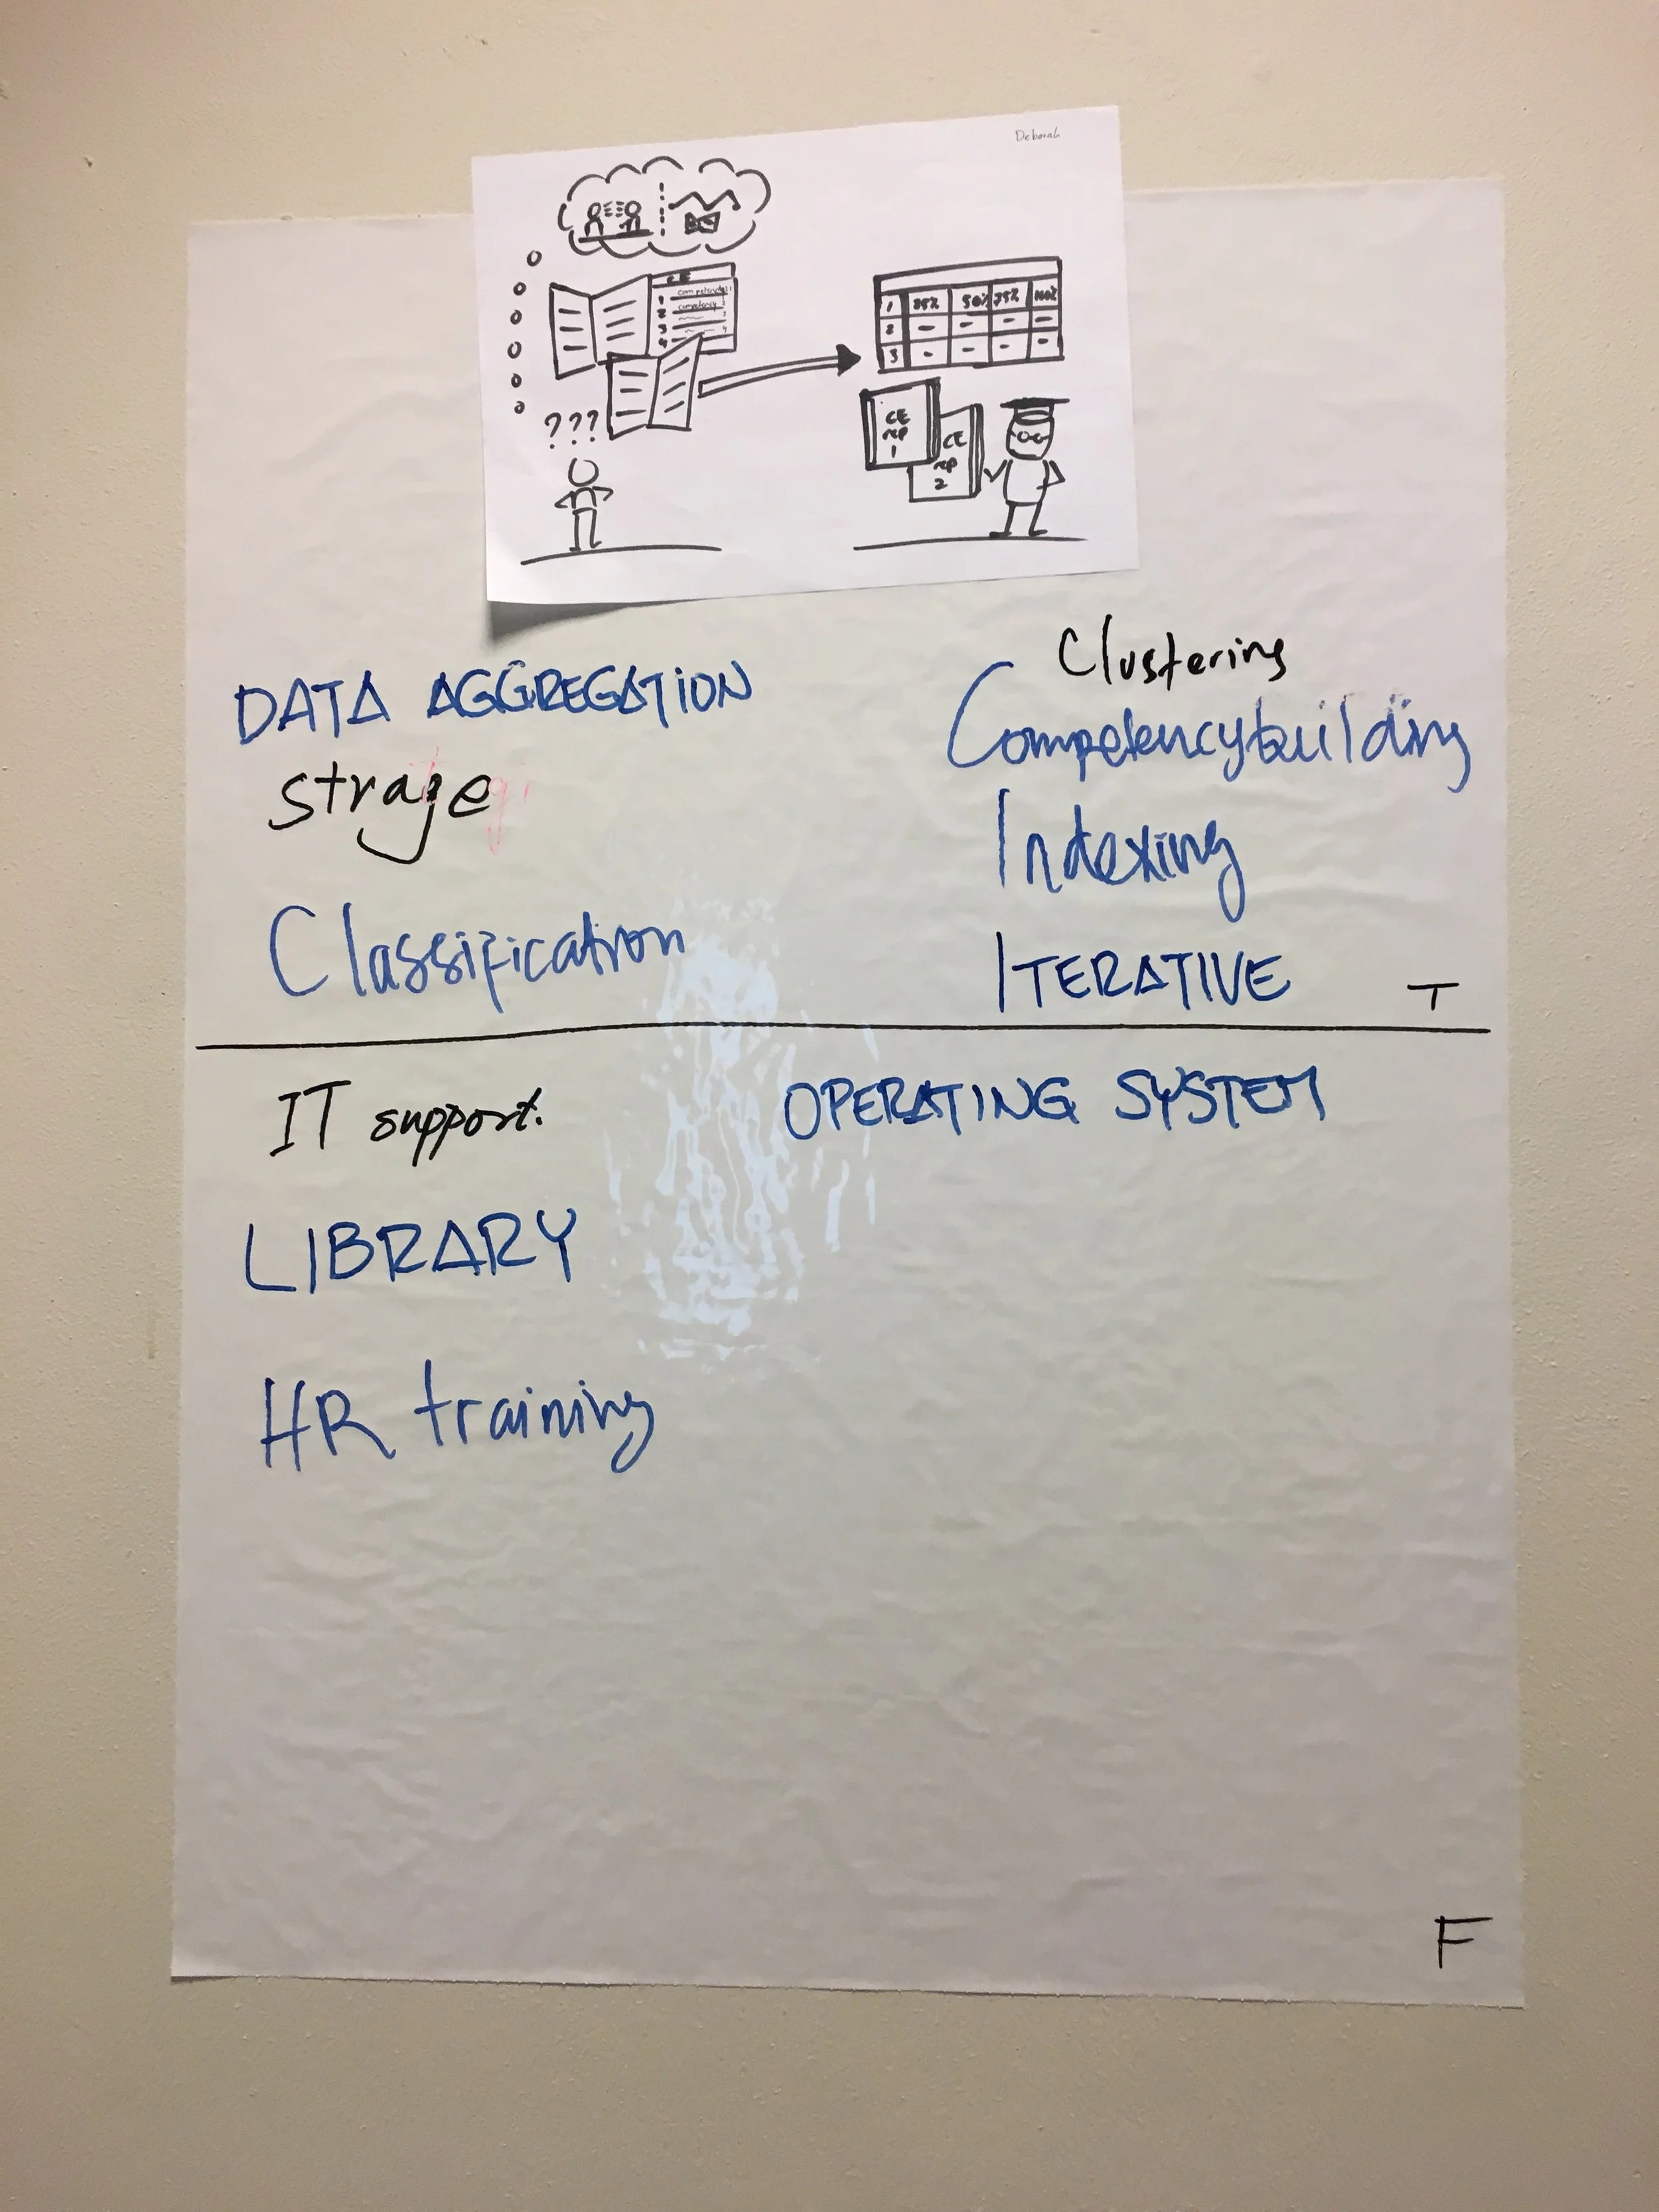 Deborah
???
1 25% 50% 75% 100%
2 - - - -
3 - - - -
1
2
3
4
competency
CE
rep
1
CE
rep
2
DATA AGGREGATION
strage
Classification
Clustering
Competencybuilding
Indexing
ITERATIVE
T
IT support.
OPERATING SYSTEM
LIBRARY
HR training
F